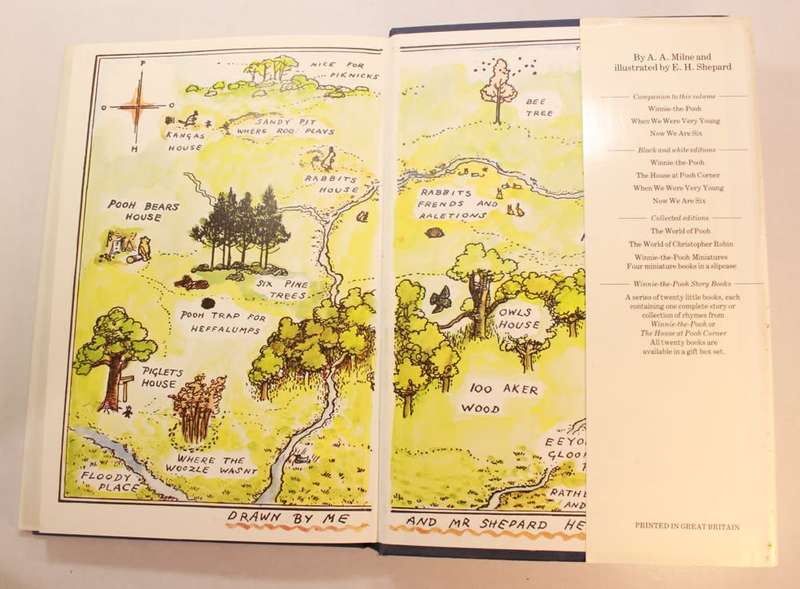 P
O O
H
NICE FOR
PIKNICKS
KANGAS
HOUSE
SANDY PIT
WHERE ROO PLAYS
RABBITS
HOUSE
POOH BEARS
HOUSE
SIX PINE
TREES
POOH TRAP FOR
HEFFALUMPS
PIGLETS
HOUSE
WHERE THE
WOOZLE WASNT
FLOODY
PLACE
DRAWN BY ME
BEE
TREE
RABBITS
FRENDS AND
RALETIONS
OWLS
HOUSE
100 AKER
WOOD
EEYO
GLOO
P
RATHE
AND
AND MR SHEPARD HE
By A. A. Milne and
illustrated by E. H. Shepard
Companion to this volume
Winnie-the-Pooh
When We Were Very Young
Now We Are Six
Black and white editions
Winnie-the-Pooh
The House at Pooh Corner
When We Were Very Young
Now We Are Six
Collected editions
The World of Pooh
The World of Christopher Robin
Winnie-the-Pooh Miniatures
Four miniature books in a slipcase
Winnie-the-Pooh Story Books
A series of twenty little books, each
containing one complete story or
collection of rhymes from
Winnie-the-Pooh or
The House at Pooh Corner
All twenty books are
available in a gift box set.
PRINTED IN GREAT BRITAIN